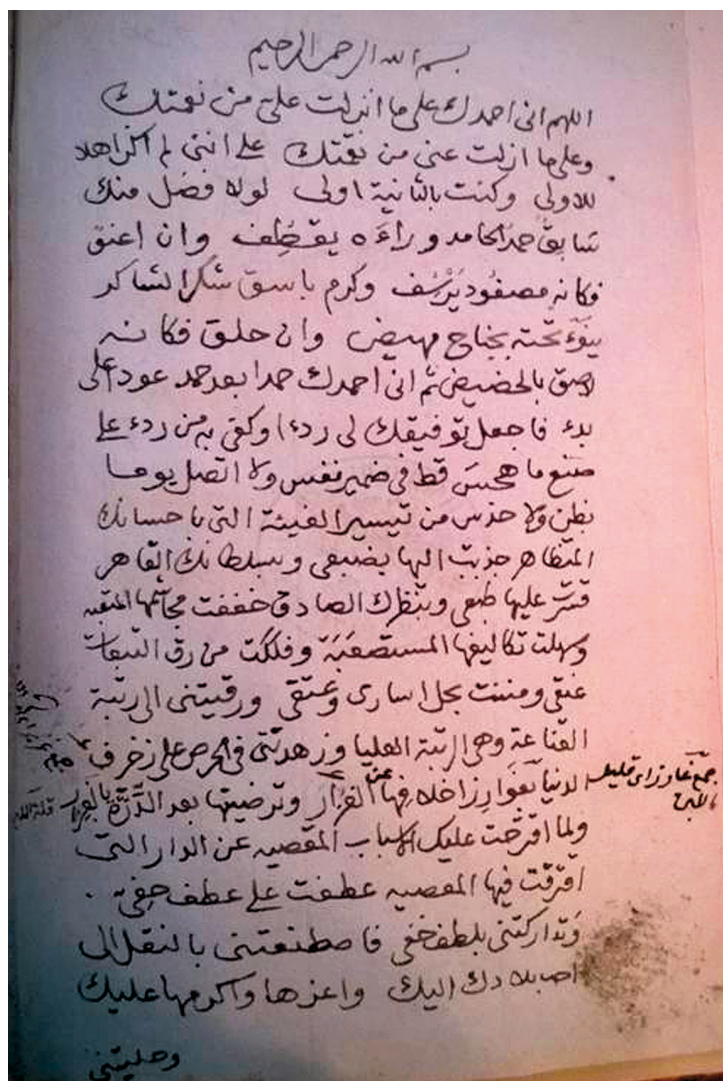 بسم الله الرحمن الرحيم
اللهم اني احمدك على ما انزلت علي من نعمتك
وعلى ما ازلت عني من نقمتك على انني لم اكن اهلا
للاولى وكنت بالثانية اولى لولا فضل منك
سابق حمد الحامد وراءه يقطف وان اعنق
فكانه مصفود يرسف وكرم باسق شكر الشاكر
ينوء تحته بجناح مهيض وان حلق فكانه
لاصق بالحضيض ثم اني احمدك حمدا بعد حمد عودا على
بدء فاجعل توفيقك لي ردءا وكفى به من ردء على
صنع ما هجس قط في ضمير نفس ولا اتصل يوما
بظن ولا حدس من تيسير الفيئة التي باحسانك
المتظاهر جذبت اليها بضبعي وبسلطانك القاهر
قسرت عليها طبعي وبنظرك الصادق خففت المتعبة
وسهلت تكاليفها المستصعبة وفككت من رق التبعات
عنقي ومننت بحل اساري وعتقي ورقيتني الى رتبة
القناعة وهي الرتبة العليا وزهدتني في الحرص على زخرف
الدنيا بغوارز اخلافها عن الغزار وترضيتها بعد الدرة بالغرار
ولما اقترحت عليك الاسباب المقصيه عن الدار التي
اقترفت فيها المعصيه عطفت علي عطف حفي
وتداركتني بلطف خفي فاصطنعتني بالنقل الى
احب بلادك اليك واعزها واكرمها عليك
وحليتني
جمع غارز اي قليلة
اللبن
قلة اللبن